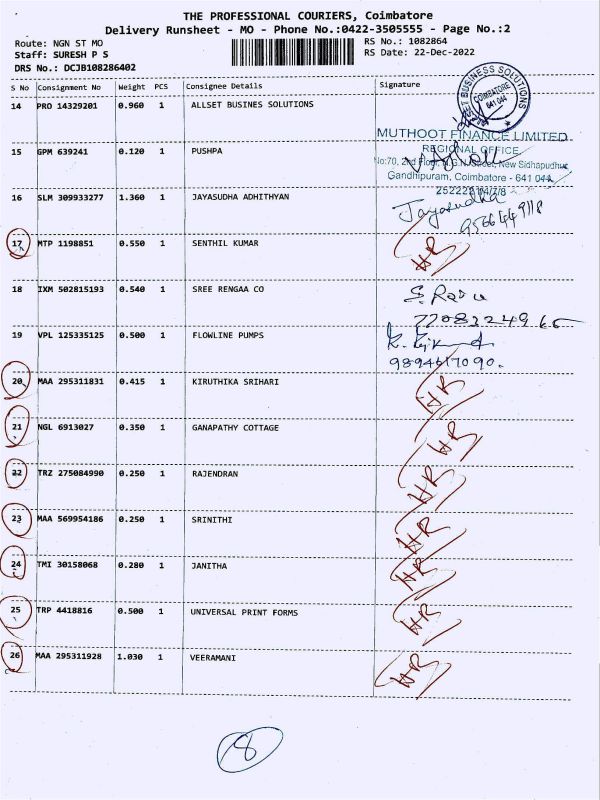 THE PROFESSIONAL COURIERS, Coimbatore
Delivery Runsheet - MO - Phone No.:0422-3505555 - Page No.:2
Route: NGN ST MO
RS No.: 1082864
Staff: SURESH P S
RS Date: 22-Dec-2022
DRS No.: DCJB108286402
S No Consignment No Weight PCS Consignee Details Signature
14 PRO 14329201 0.960 1 ALLSET BUSINES SOLUTIONS
BUSINESS SOLUTIONS
COIMBATORE
641 044
MUTHOOT FINANCE LIMITED
REGIONAL OFFICE
15 GPM 639241 0.120 1 PUSHPA
No:70, 2nd Floor, N.G.N. Street, New Sidhapudhur
Gandhipuram, Coimbatore - 641 044
16 SLM 309933277 1.360 1 JAYASUDHA ADHITHYAN
Jayasudha
9566449118
17 MTP 1198851 0.550 1 SENTHIL KUMAR HR
18 IXM 502815193 0.540 1 SREE RENGAA CO
7708224966
19 VPL 125335125 0.500 1 FLOWLINE PUMPS
9894617090.
20 MAA 295311831 0.415 1 KIRUTHIKA SRIHARI HR
21 NGL 6913027 0.350 1 GANAPATHY COTTAGE HR
22 TRZ 275084990 0.250 1 RAJENDRAN HR
23 MAA 569954186 0.250 1 SRINITHI HR
24 TMI 30158068 0.280 1 JANITHA HR
25 TRP 4418816 0.500 1 UNIVERSAL PRINT FORMS HR
26 MAA 295311928 1.030 1 VEERAMANI HR
8